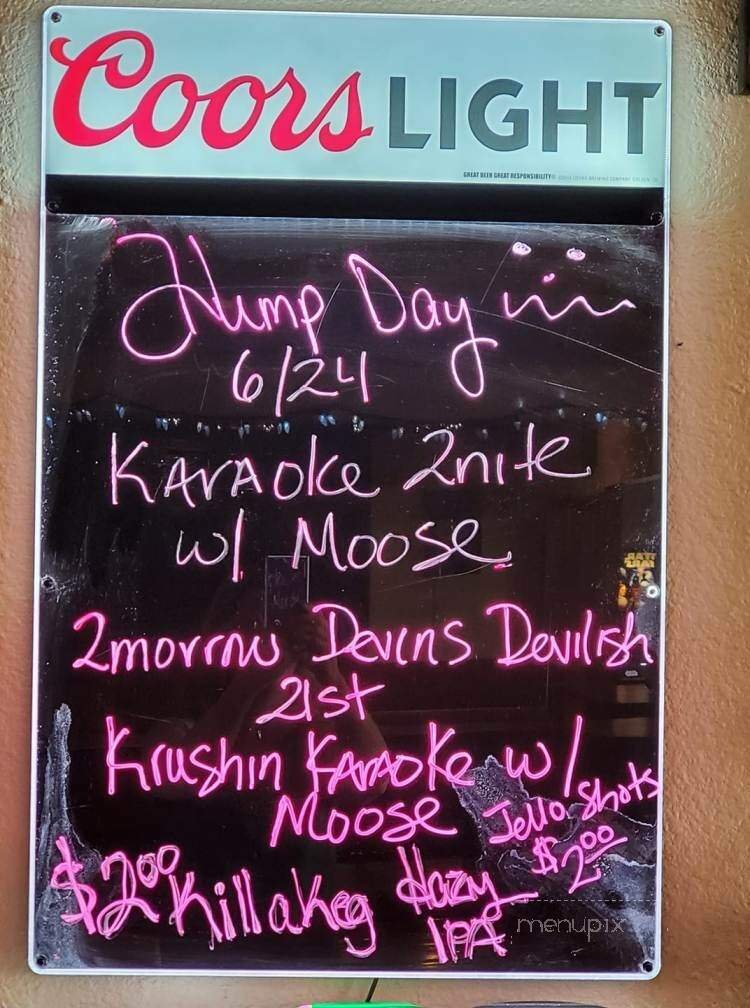 Coors LIGHT
GREAT BEER GREAT RESPONSIBILITY®
Hump Day
6/24
KArAoke 2nite
w/ Moose
2morrow Devins Devilish
21st
Krushin KArAoke w/
Moose
Jello Shots
$2.00
$2.00 Killakeg Hazy
IPA
menupix